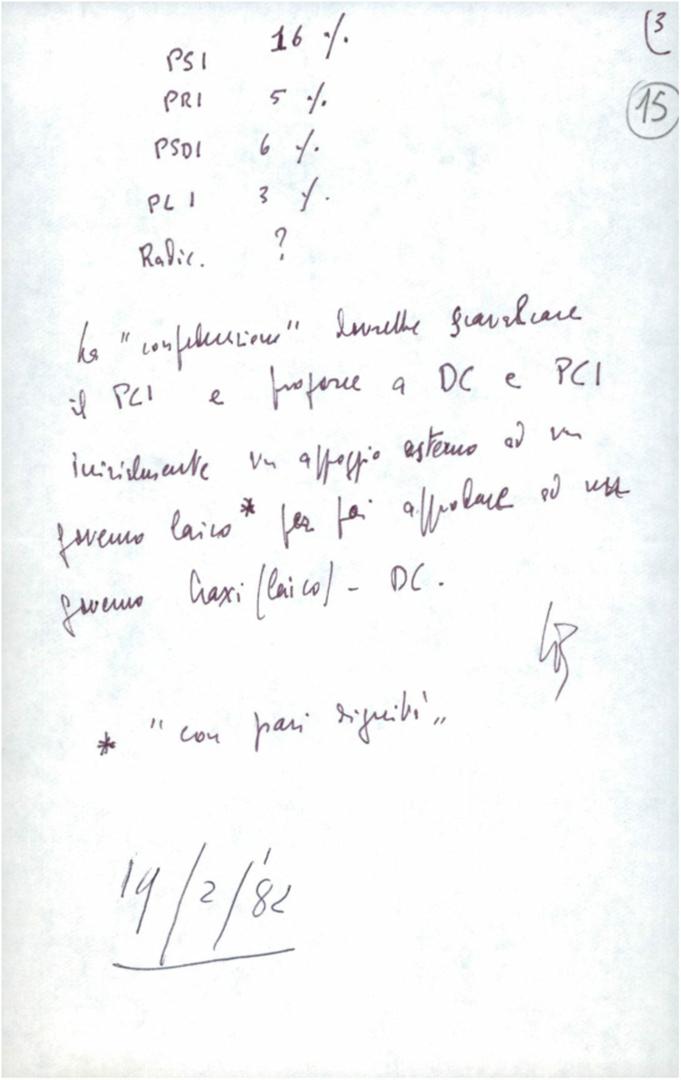 (3
15
PSI 16 %.
PRI 5 %.
PSDI 6 %.
PLI 3 %.
Radic. ?
La "confederazione" dovrebbe scavalcare
il PCI e proporre a DC e PCI
inizialmente un appoggio esterno ad un
governo laico* per poi approdare ad un
governo Craxi (laico) - DC.
* "con pari dignità"
19/2/'82